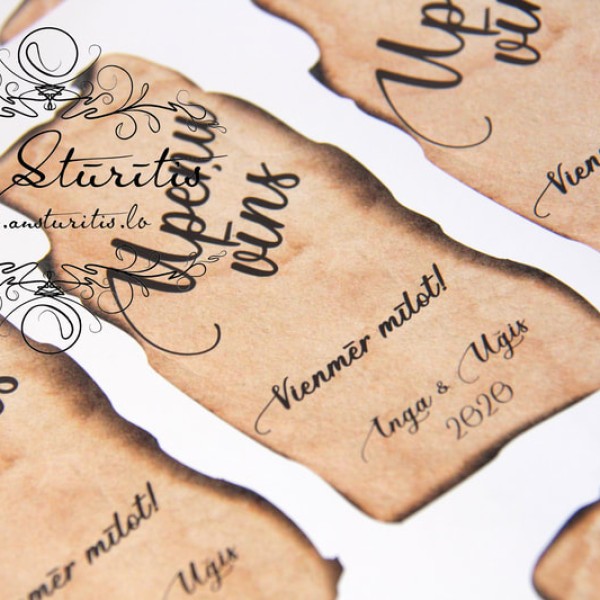 Stūrītis
.ansturitis.lv
Upeņu
vīns
Vienmēr mīlot!
Inga & Uģis
2020
Up
vīn
Vienm
mēr mīlot!
Uģis